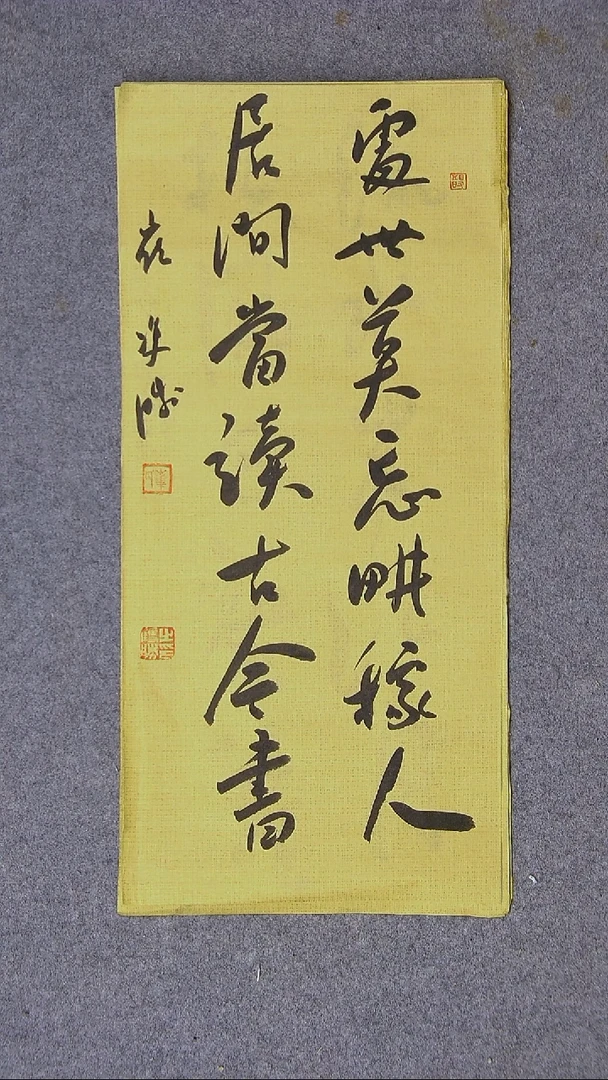 處世莫忘畊稼人
居间當讀古今書